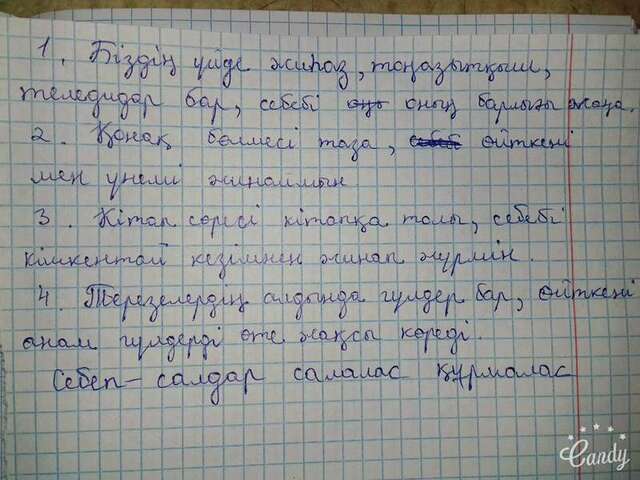 1. Біздің үйде жиһаз, тоңазытқыш,
теледидар бар, себебі оның барлығы жаңа.
2. Қонақ бөлмесі таза, өйткені
мен үнемі жинаймын
3. Кітап сөресі кітапқа толы, себебі
кішкентай кезімнен жинап жүрмін.
4. Терезелердің алдында гүлдер бар, өйткені
анам гүлдерді өте жақсы көреді.
Себеп-салдар салалас құрмалас
Candy